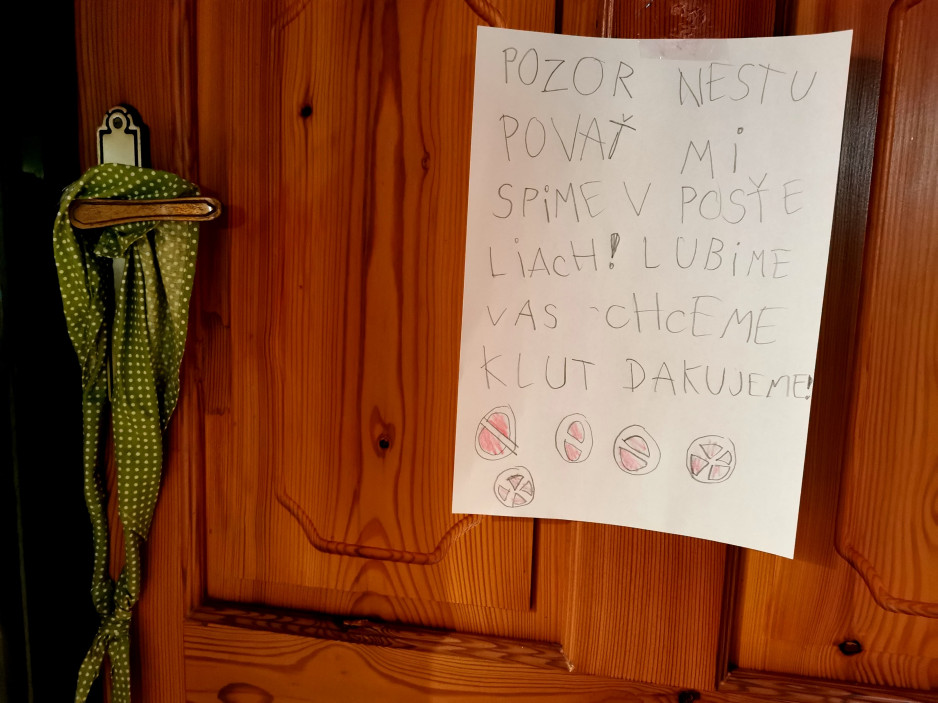 POZOR NESTU
POVAŤ Mi
SPiME V POSŤE
LiAcH! LUBiME
VAS CHcEME
KLUT DAKUJEME!